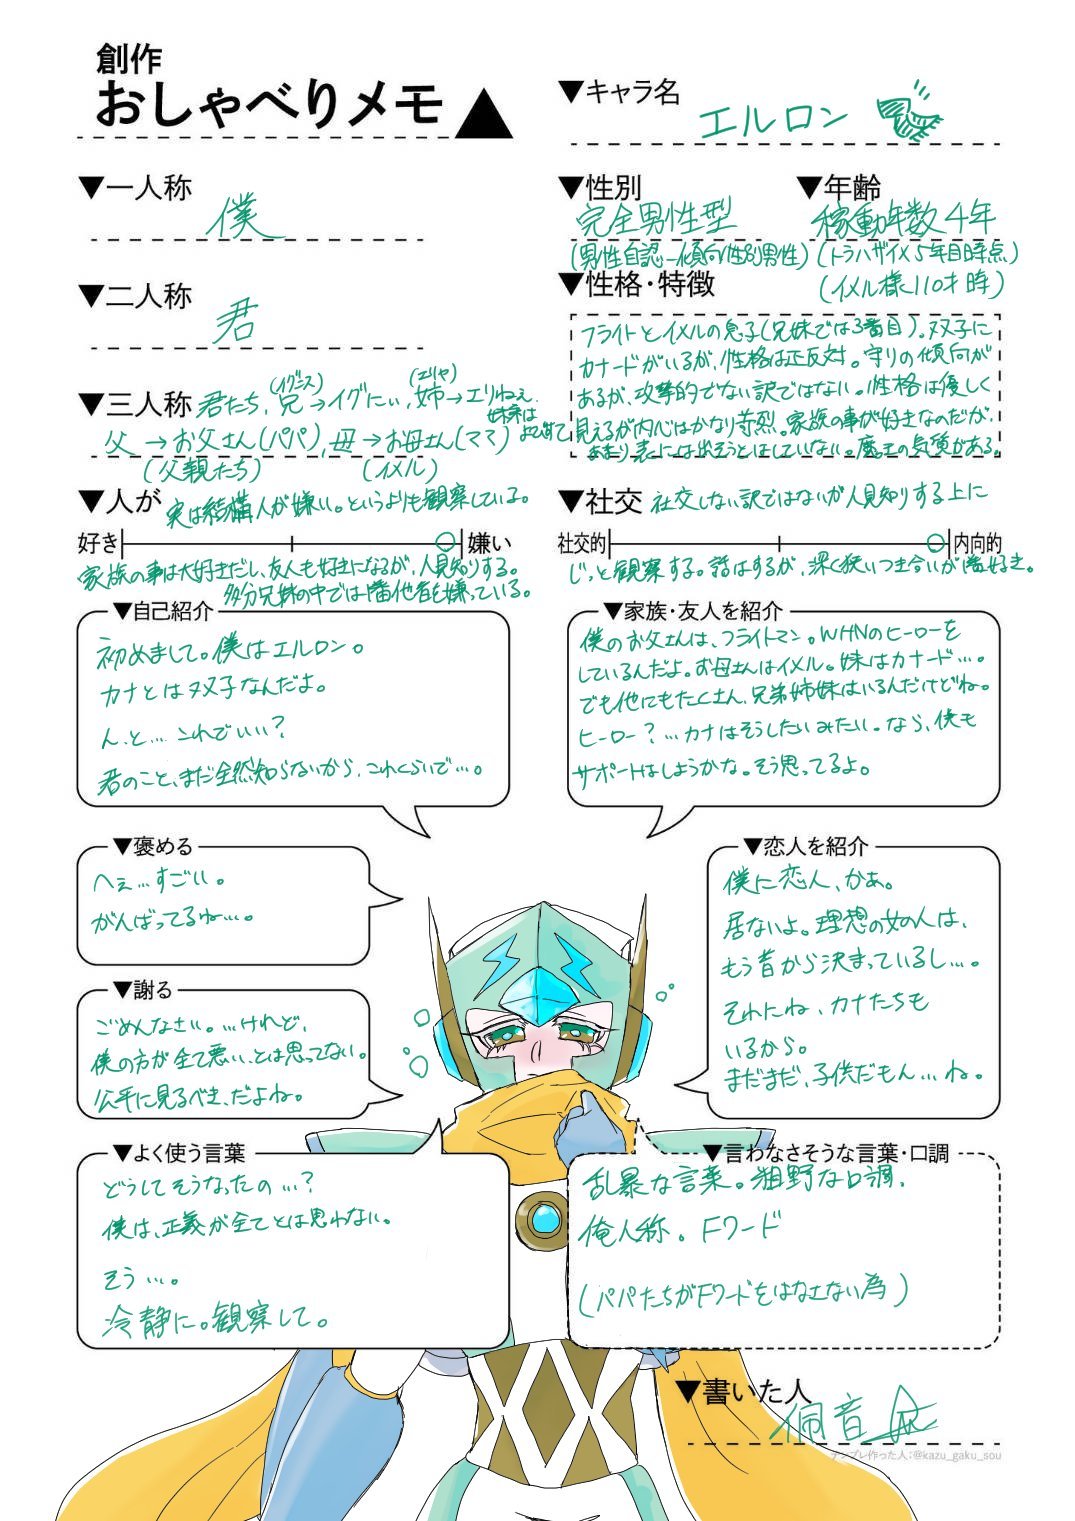 創作
おしゃべりメモ
▼キャラ名
エルロン
▼一人称
僕
▼性別
完全男性型
(男性自認―傾向性別男性)
▼年齢
稼動年数4年
(トラハザイメ5年目時点)
(イメル様110才時)
▼二人称
君
▼性格・特徴
フライトとイメルの息子(兄妹では3番目)。双子に
カナードがいるが、性格は正反対。守りの傾向が
あるが、攻撃的でない訳ではない。性格は優しく
見えるが内心はかなり苛烈。家族の事が好きなのだが、
あまり表には出そうとはしていない。魔王の気質がある。
▼三人称
君たち、兄→イグにぃ、姉→エリねぇ、
(イグニス)
(エリヤ)
妹弟は
父→お父さん(パパ)、母→お母さん(ママ)
(父親たち)
(イメル)
▼人が
実は結構人が嫌い。というよりも観察している。
好き
嫌い
家族の事は大好きだし、友人も好きになるが、人見知りする。
多分兄妹の中では1番他者を嫌っている。
▼社交
社交しない訳ではないが人見知りする上に
社交的
内向的
じっと観察する。話はするが、深く狭いつき合いが1番好き。
▼自己紹介
初めまして。僕はエルロン。
カナとは双子なんだよ。
ん、と…これでいい?
君のこと、まだ全然知らないから、これくらいで…。
▼家族・友人を紹介
僕のお父さんは、フライトマン。WHNのヒーローを
しているんだよ。お母さんはイメル。妹はカナード…。
でも他にもたくさん、兄弟姉妹はいるんだけどね。
ヒーロー?…カナはそうしたいみたい。なら、僕も
サポートはしようかな。そう思ってるよ。
▼褒める
へぇ…すごい。
がんばってるね…。
▼恋人を紹介
僕に恋人、かぁ。
居ないよ。理想の女の人は、
もう昔から決まっているし…。
それにね、カナたちも
いるから。
まだまだ、子供だもん…ね。
▼謝る
ごめんなさい。…けれど、
僕の方が全て悪い、とは思ってない。
公平に見るべき、だよね。
▼よく使う言葉
どうしてそうなったの…?
僕は、正義が全てとは思わない。
そう…。
冷静に。観察して。
▼言わなさそうな言葉・口調
乱暴な言葉。粗野な口調。
俺人称。Fワード
(パパたちがFワードをはなさない為)
▼書いた人
テンプレ作った人：@kazu_gaku_sou